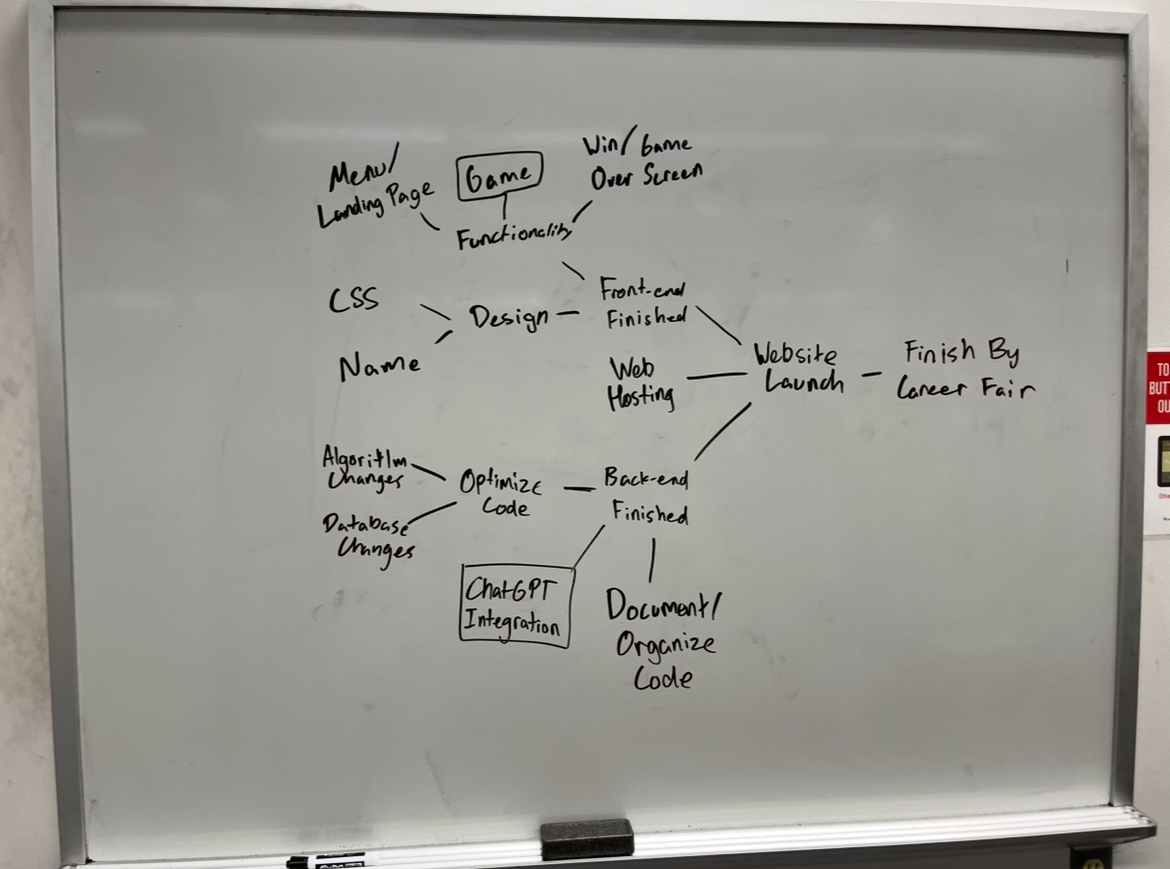 Menu/
Landing Page
Game
Win/Game
Over Screen
Functionality
CSS
Name
Design
Front-end
Finished
Web
Hosting
Website
Launch
Finish By
Career Fair
Algorithm
Changes
Database
Changes
Optimize
Code
Back-end
Finished
ChatGPT
Integration
Document/
Organize
Code
TO
BUT
OU